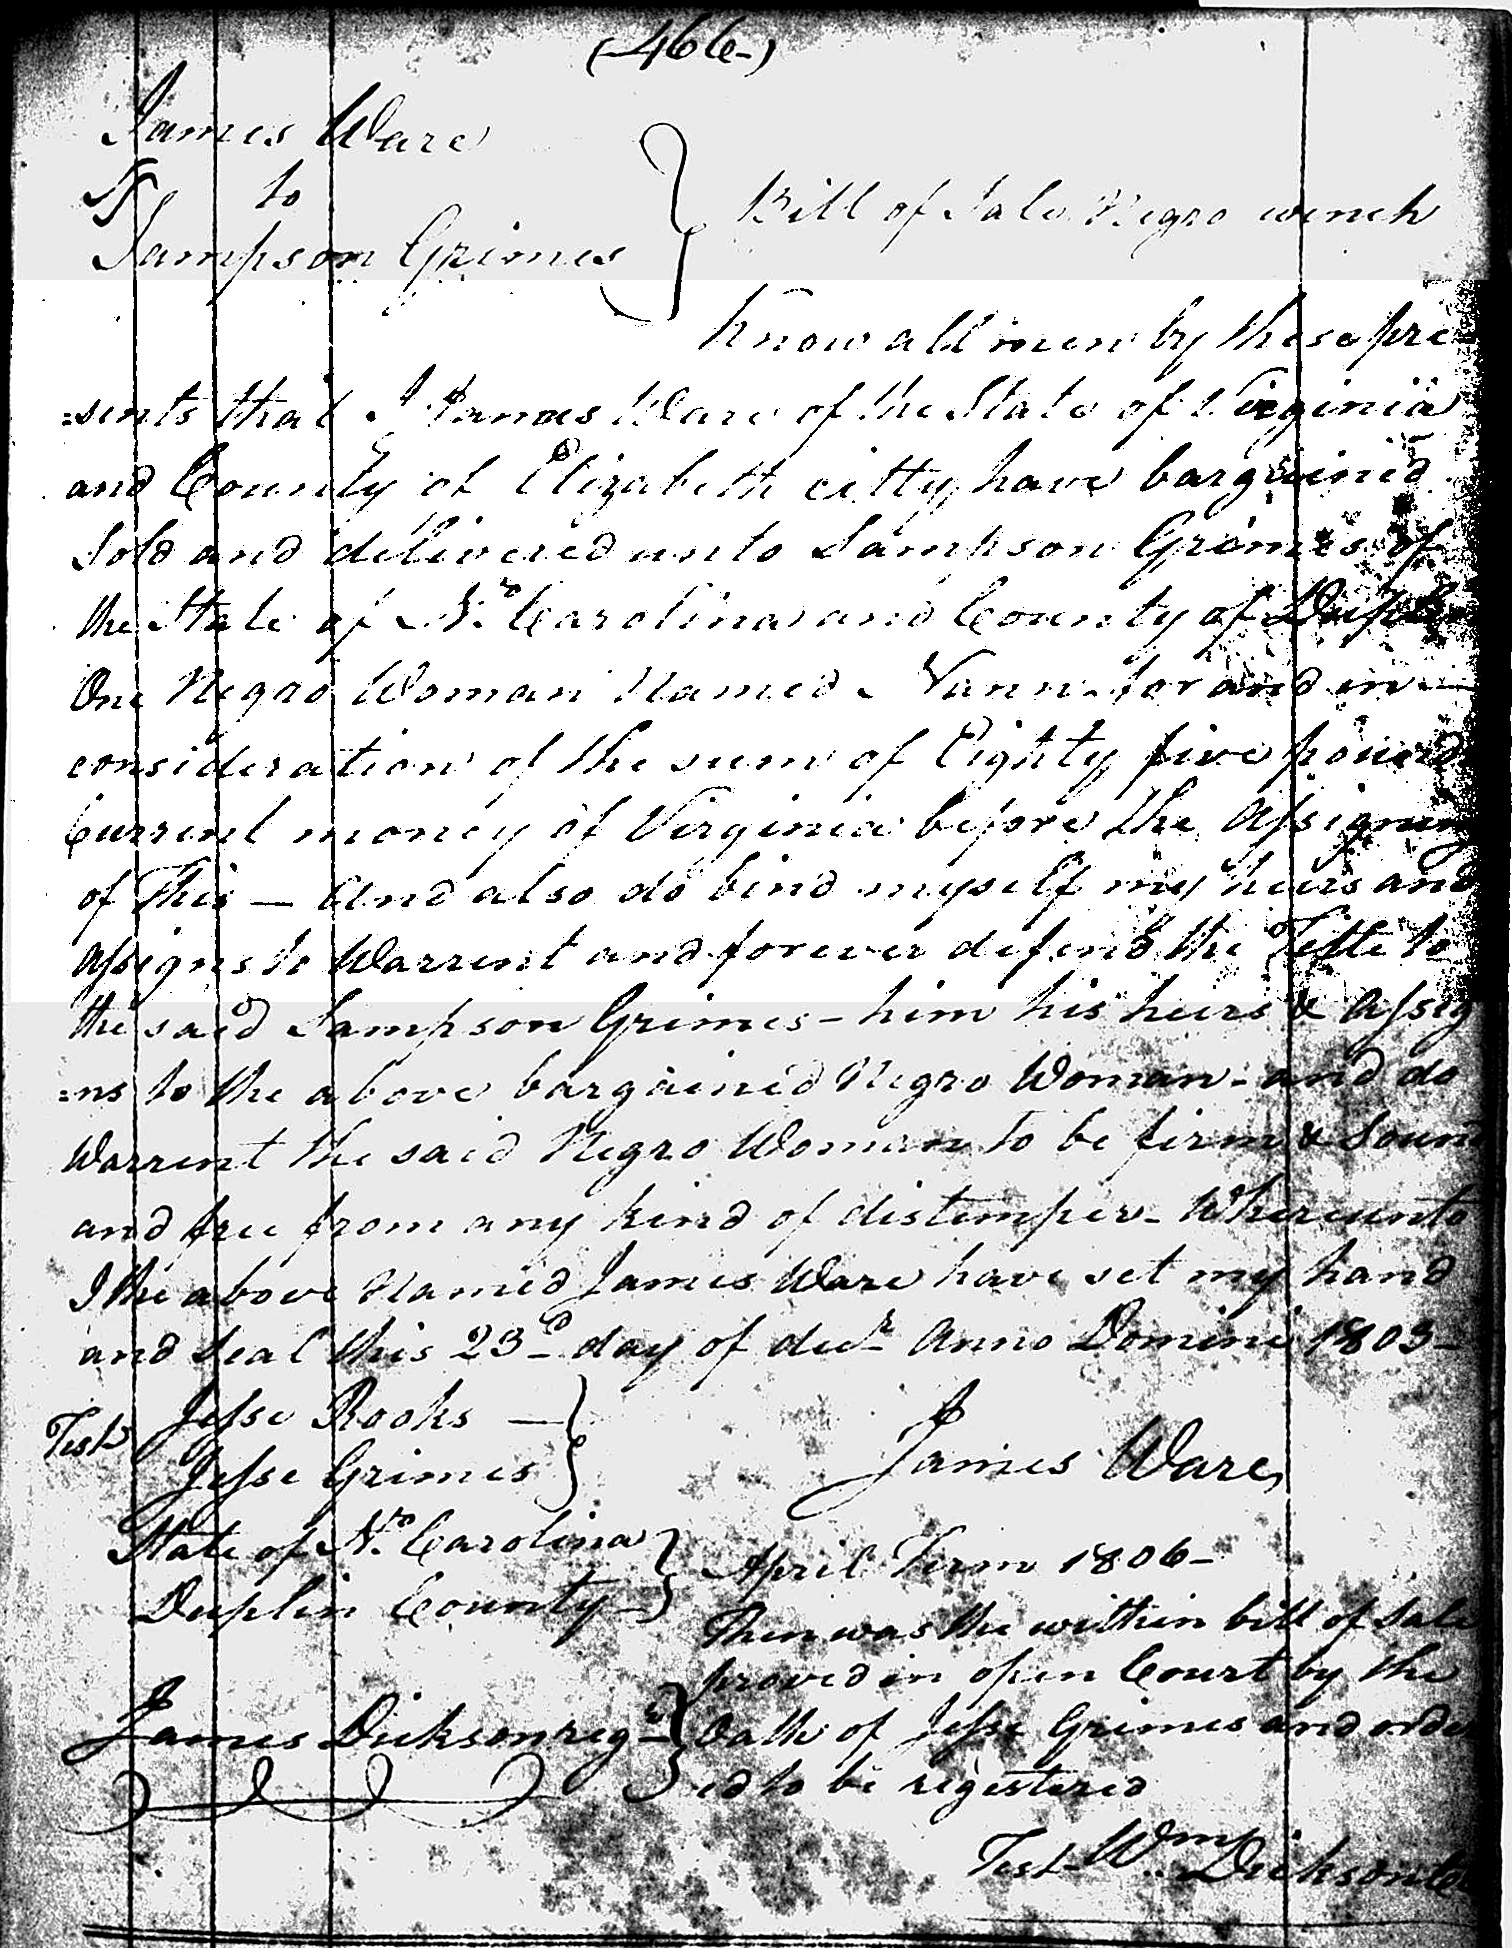 (-466-)
James Ware
to
Sampson Grimes } Bill of Sale Negro wench
Know all men by these pre
=sents that I James Ware of the State of Virginia
and County of Elizabeth citty have bargained
Sold and delivered unto Sampson Grimes of
the State of No. Carolina and County of Duplin
One Negro Woman Named Nann for and in
consideration of the sum of Eighty five pound
Current money of Virginia before the assigning
of This — And also do bind myself my heirs and
assigns to Warrent and forever defend the Title to
the said Sampson Grimes - him his heirs & assig
=ns to the above bargained Negro Woman - and do
Warrent the said Negro Woman to be firm & Sound
and free from any kind of distemper - Whereunto
I the above Named James Ware have set my hand
and Seal this 23d day of decr Anno Domini 1803 -
Test Jesse Rooks —
Jesse Grimes } James Ware
State of No. Carolina
Duplin County } April Term 1806 -
Then was the within bill of Sale
proved in open Court by the
James Dickson regr } Oath of Jesse Grimes and order
ed to be regestered
Test Wm Dickson